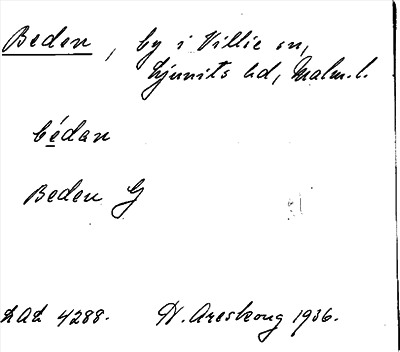 Beden, by i Villie sn,
Ljunits hd, Malm.l.
bédan
Beden G
LAL 4288. H. Areskoug 1936.